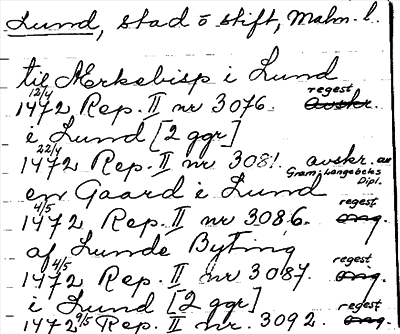 Lund, stad o stift, Malm. l.
til Ærkebisp i Lund
12/4 regest
1472 Rep. II nr 3076. avskr.
i Lund [2 ggr]
22/4
1472 Rep. II nr 3081. avskr. av
Gram: Langebeks Dipl.
en Gaard i Lund
4/5 regest
1472 Rep. II nr 3086. orig.
af Lunde Byting
4/5 regest
1472 Rep. II nr 3087. orig.
i Lund [2 ggr] regest
1472 9/5 Rep. II nr. 3092. orig.